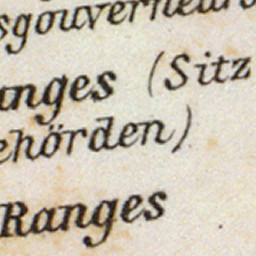 sgouverneurs
anges (Sitz
ehörden)
Ranges